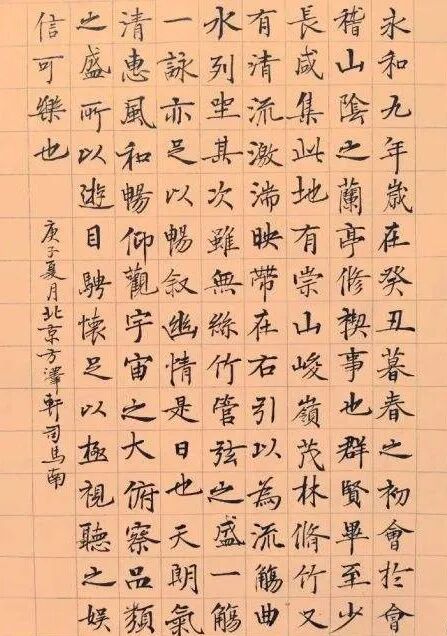 永和九年歲在癸丑暮春之初會於會
稽山陰之蘭亭修禊事也群賢畢至少
長咸集此地有崇山峻嶺茂林脩竹又
有清流激湍映帶在右引以為流觴曲
水列坐其次雖無絲竹管弦之盛一觴
一詠亦足以暢叙幽情是日也天朗氣
清惠風和暢仰觀宇宙之大俯察品類
之盛所以遊目騁懷足以極視聽之娛
信可樂也
庚子夏月北京方澤軒司馬南